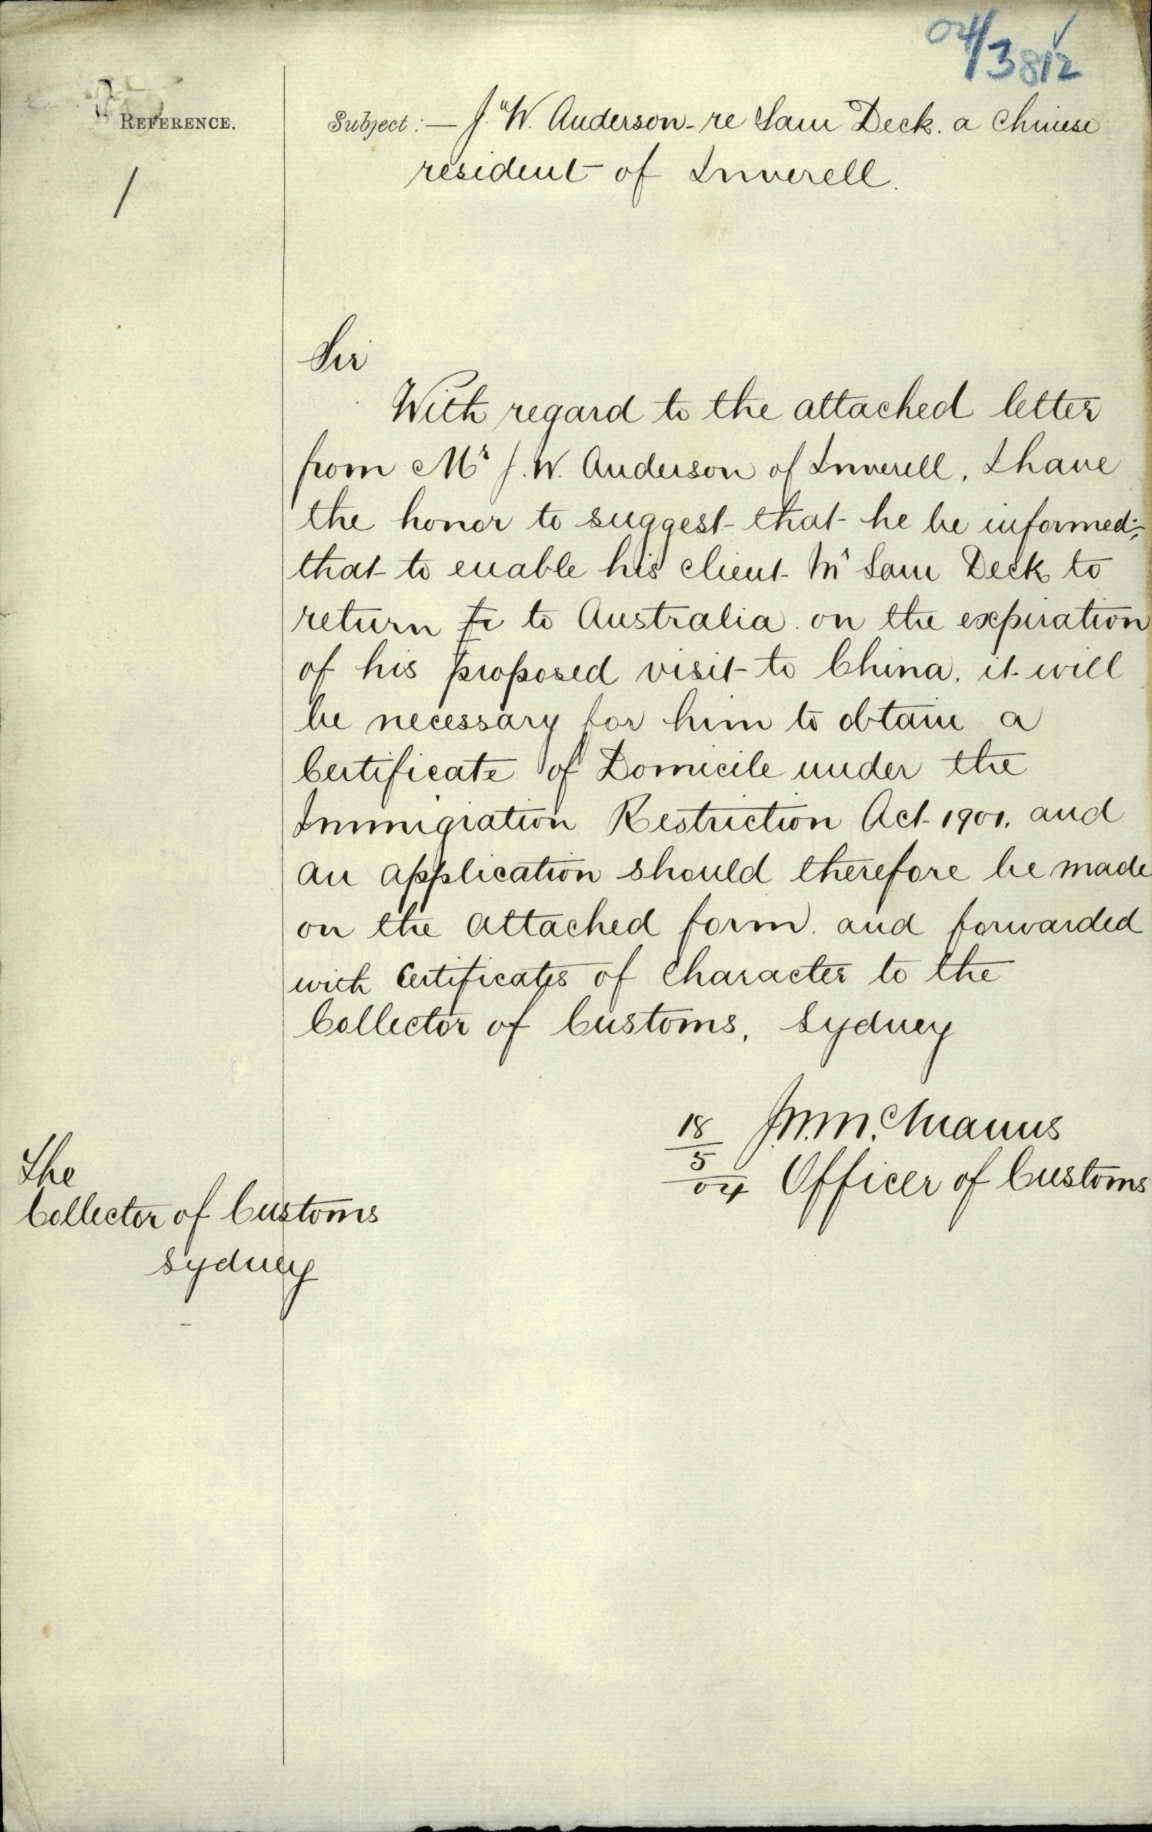 04/3812
REFERENCE.
1
Subject:— J. W. Anderson - re Sam Deck. a Chinese
resident of Inverell.
Sir
With regard to the attached letter
from Mr J. W. Anderson of Inverell, I have
the honor to suggest that he be informed,
that to enable his client Mr Sam Deck to
return to Australia on the expiration
of his proposed visit to China, it will
be necessary for him to obtain a
Certificate of Domicile under the
Immigration Restriction Act 1901, and
an application should therefore be made
on the attached form and forwarded
with Certificates of Character to the
Collector of Customs, Sydney
18/5/04
Officer of Customs
The
Collector of Customs
Sydney